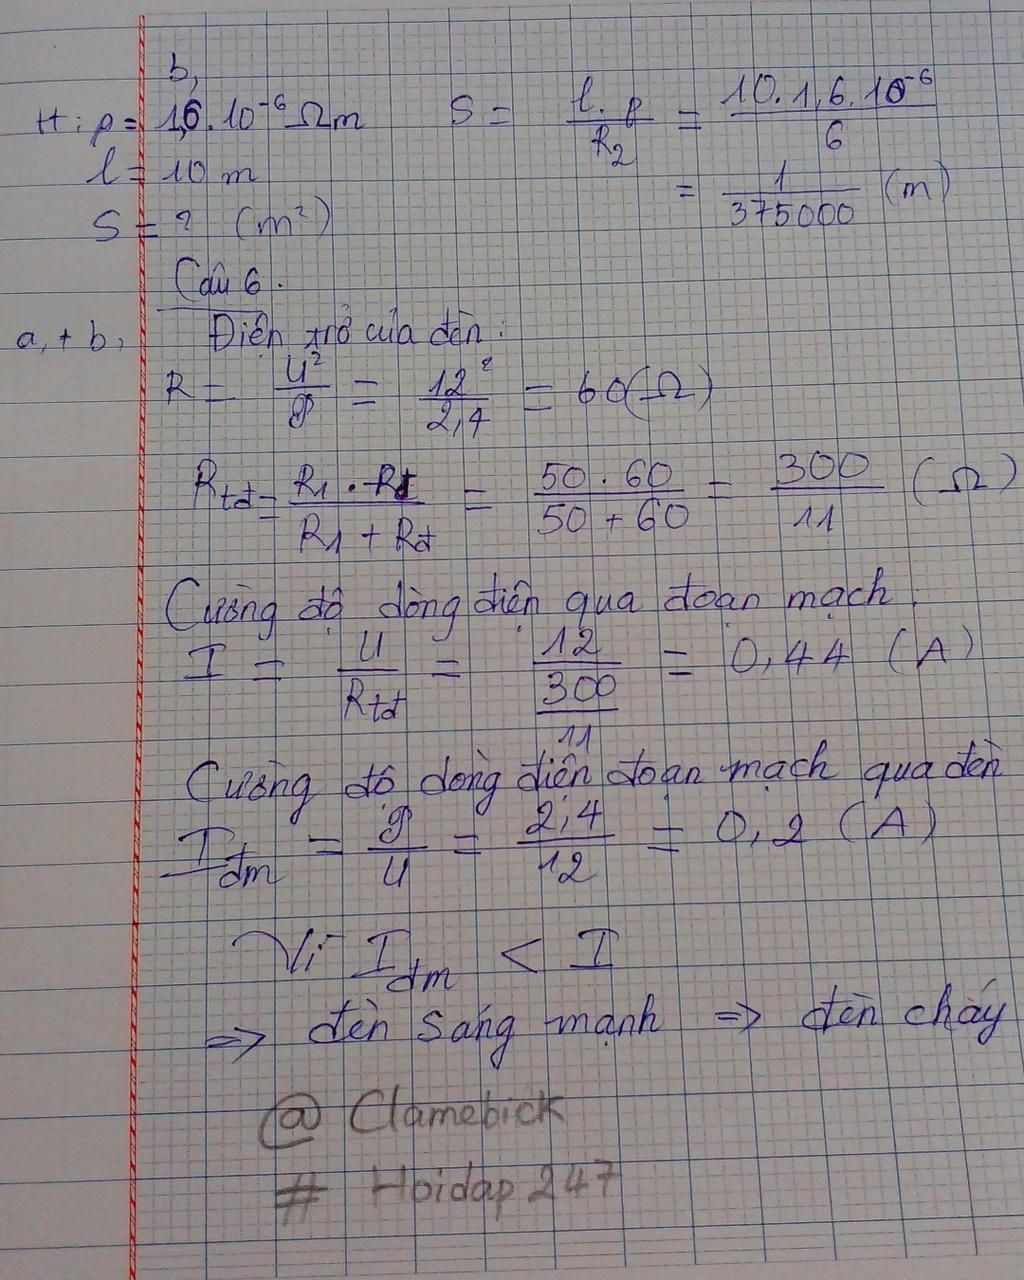 b,
H: ρ = 1,6.10⁻⁶ Ωm S = l.ρ/R₂ = 10.1,6.10⁻⁶/6
l = 10 m = 1/375000 (m)
S = ? (m²)
Câu 6.
a, + b, Điện trở của đèn:
R = U²/P = 12²/2,4 = 60(Ω)
Rtđ = R₁.Rđ/R₁ + Rđ = 50.60/50 + 60 = 300/11 (Ω)
Cường độ dòng điện qua đoạn mạch:
I = U/Rtđ = 12/300/11 = 0,44 (A)
Cường độ dòng điện đoạn mạch qua đèn
Iđm = P/U = 2,4/12 = 0,2 (A)
Vì Iđm < I
=> đèn sáng mạnh => đèn cháy
@ Clamebick
# Hoidap 247